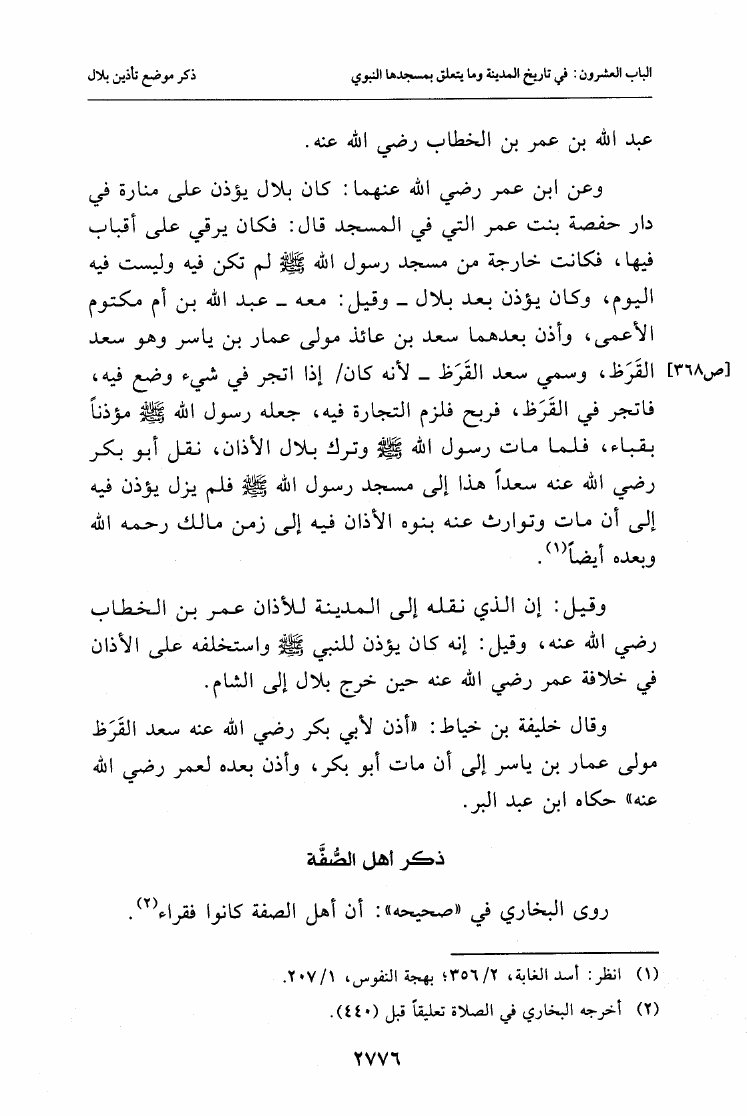 الباب العشرون: في تاريخ المدينة وما يتعلق بمسجدها النبوي ذكر موضع تأذين بلال
عبد الله بن عمر بن الخطاب رضي الله عنه.
وعن ابن عمر رضي الله عنهما: كان بلال يؤذن على منارة في
دار حفصة بنت عمر التي في المسجد قال: فكان يرقي على أقباب
فيها، فكانت خارجة من مسجد رسول الله ﷺ لم تكن فيه وليست فيه
اليوم، وكان يؤذن بعد بلال ـ وقيل: معه ـ عبد الله بن أم مكتوم
الأعمى، وأذن بعدهما سعد بن عائذ مولى عمار بن ياسر وهو سعد
[ص٣٦٨] القَرَظ، وسمي سعد القَرَظ ـ لأنه كان/ إذا اتجر في شيء وضع فيه،
فاتجر في القَرَظ، فربح فلزم التجارة فيه، جعله رسول الله ﷺ مؤذناً
بقباء، فلما مات رسول الله ﷺ وترك بلال الأذان، نقل أبو بكر
رضي الله عنه سعداً هذا إلى مسجد رسول الله ﷺ فلم يزل يؤذن فيه
إلى أن مات وتوارث عنه بنوه الأذان فيه إلى زمن مالك رحمه الله
وبعده أيضاً(١).
وقيل: إن الذي نقله إلى المدينة للأذان عمر بن الخطاب
رضي الله عنه، وقيل: إنه كان يؤذن للنبي ﷺ واستخلفه على الأذان
في خلافة عمر رضي الله عنه حين خرج بلال إلى الشام.
وقال خليفة بن خياط: «أذن لأبي بكر رضي الله عنه سعد القَرَظ
مولى عمار بن ياسر إلى أن مات أبو بكر، وأذن بعده لعمر رضي الله
عنه» حكاه ابن عبد البر.
ذكر أهل الصُّفَّة
روى البخاري في «صحيحه»: أن أهل الصفة كانوا فقراء(٢).
(١) انظر: أسد الغابة، ٣٥٦/٢؛ بهجة النفوس، ٢٠٧/١.
(٢) أخرجه البخاري في الصلاة تعليقاً قبل (٤٤٠).
٢٧٧٦